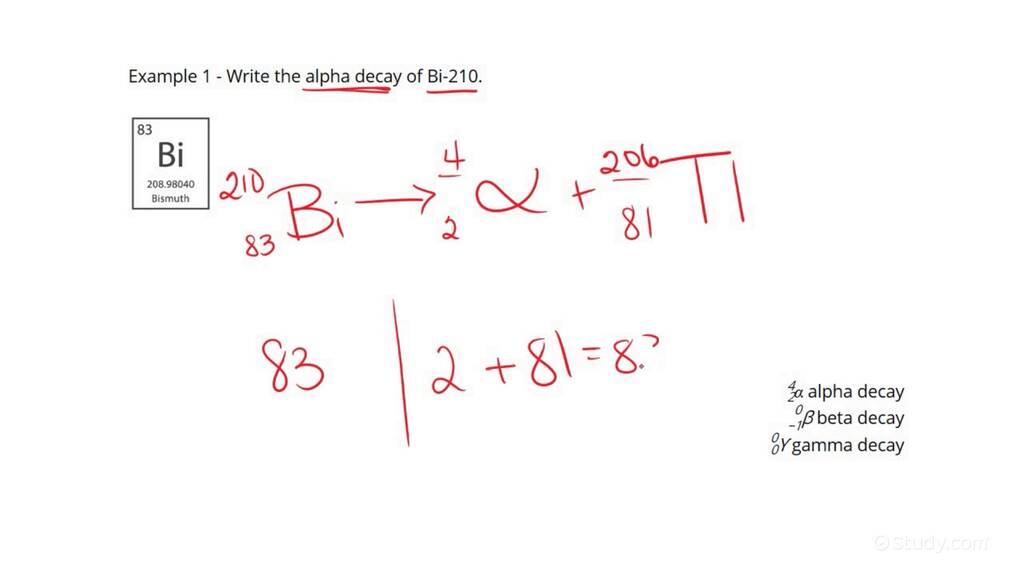 Example 1 - Write the alpha decay of Bi-210.
83
Bi
208.98040
Bismuth
²¹⁰₈₃Bi → ⁴₂α + ²⁰⁶₈₁Tl
83 | 2 + 81 = 83
⁴₂α alpha decay
⁰₋₁β beta decay
⁰₀γ gamma decay
Study.com